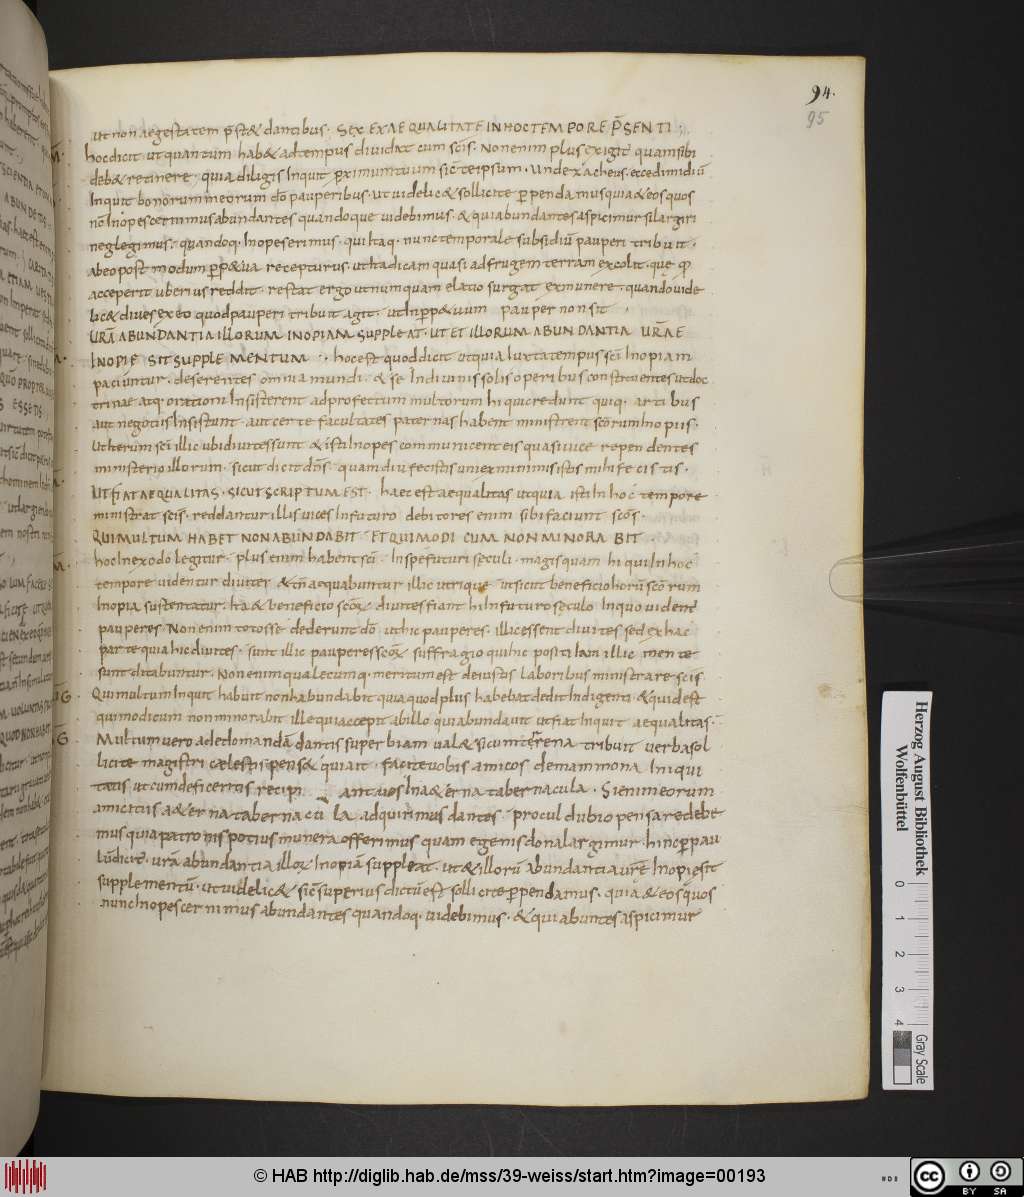 94.
95
ut non aegestatem p̄st& dantibus. SEX EX AEQUALITATE IN HOC TEMPORE P̄SENTI;
hoc dicit ut quantum hab& ad tempus dividat cum scis̄. Non enim plus exigit quam sibi
deb& retinere; quia diliges inquit proximum tuum sic̄ te ipsum. unde zacheus. ecce dimidiū
inquit bonorum meorum dō pauperibus. ut videlic& sollicite perpendamus quia & eos quos
nc̄ inopes cernimus abundantes quandoque videbimus. & qui abundantes aspicimur si largiri
neglegimus. quandoq. inopes erimus. qui itaq. nunc temporale subsidiū pauperi tribuit.
ab eo postmodum perp&ua recepturus. ut ita dicam quasi ad frugem terram excolit. quę
acceperit uberius reddit. restat ergo ut numquam elatio surgat ex munere. quando vide
lic& dives ex eo quod pauperi tribuit agit. ut in perp&uum pauper non sit.
URĀ ABUNDANTIA ILLORUM INOPIAM SUPPLEAT. UT ET ILLORUM ABUNDANTIA URĀE
INOPIE SIT SUPPLEMENTUM. hoc est quod dicit ut quia iuxta tempus sci inopiam
paciuntur. deserentes omnia mundi. & se in divinis solis operibus constituentes ut doc
trinae atq. orationi insisterent ad profectum multorum hi qui credunt quiq. artibus
aut negotiis insistunt. aut certe facultates paternas habent ministrent scōrum inopiis.
ut iterum sci illic ubi divites sunt & isti inopes communicent eis quasi vice rependentes
ministerio illorum. sicut dicit dn̄s. quamdiu fecistis uni ex minimis istis mihi fecistis.
UT FIAT AEQUALITAS. SICUT SCRIPTUM EST. haec est aequalitas ut quia isti in hoc tempore
ministrat scis. reddantur illis vices in futuro debitores enim sibi faciunt scōs.
QUI MULTUM HABET NON ABUNDABIT ET QUI MODI CUM NON MINORABIT.
hoc in exodo legitur. plus enim habent sci in spe futuri seculi. magis quam hi qui in hoc
tempore videntur divites & tn̄ aequabuntur illic utrique ut sicut beneficio horū scōrum
inopia sustentatur. ita & beneficio scōꝝ divites fiant hi in futuro sęculo in quo videnť
pauperes. Non enim totos se dederunt dō ut hic pauperes. illic essent divites sed ex hac
parte quia hic divites. sunt illic pauperes scōꝝ suffragio qui hic positi iam illic mente
sunt ditabuntur. Non enim qualecumq. meritum est de iustis laboribus ministrare scis̄
Qui multum inquit habuit non habundabit quia quod plus habebat dedit indigenti & qui dest
qui modicum non minorabit ille qui accepit ab illo qui abundavit ut fiat inquit aequalitas.
Multum vero ad edomandā dantis superbiam val& si cum terrena tribuit verba sol
licite magistri cęlestis pens& qui ait. facite vobis amicos de mammona iniqui
tatis ut cum defeceritis recipiant vos in a&erna tabernacula. Si enim eorum
amicitiis a&erna tabernacula adquirimus dantes. procul dubio pensare debe
mus quia patronis potius munera offerimus quam egenis dona largimur. hinc per pau
lū dicit̄. urā abundantia illoꝝ inopiā suppleat. ut & illorū abundantia urē inopie sit
supplementū. ut videlic& sic̄ superius dictū est sollicite perpendamus. quia & eos quos
nunc inopes cernimus abundantes quandoq. videbimus. & qui abuntes aspicimur
Herzog August Bibliothek
Wolfenbüttel
0 1 2 3 4
Gray Scale
© HAB http://diglib.hab.de/mss/39-weiss/start.htm?image=00193
cc BY SA